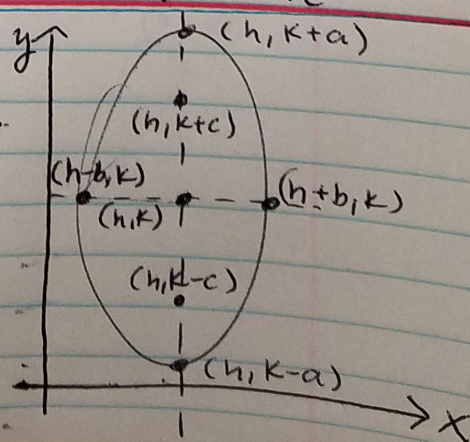 y
(h, k+a)
(h, k+c)
(h-b, k)
(h+b, k)
(h, k)
(h, k-c)
(h, k-a)
x